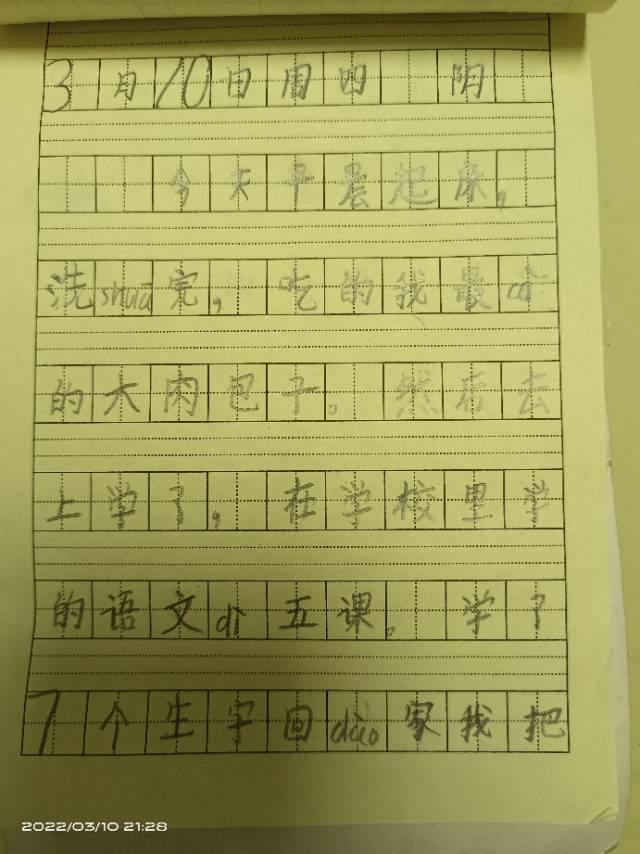 3月10日周四 阴
今天早晨起床，
洗shuā完，吃的我最ài
的大肉包子。然后去
上学了，在学校里学
的语文dì五课。学了
7个生字回dào家我把
2022/03/10 21:28